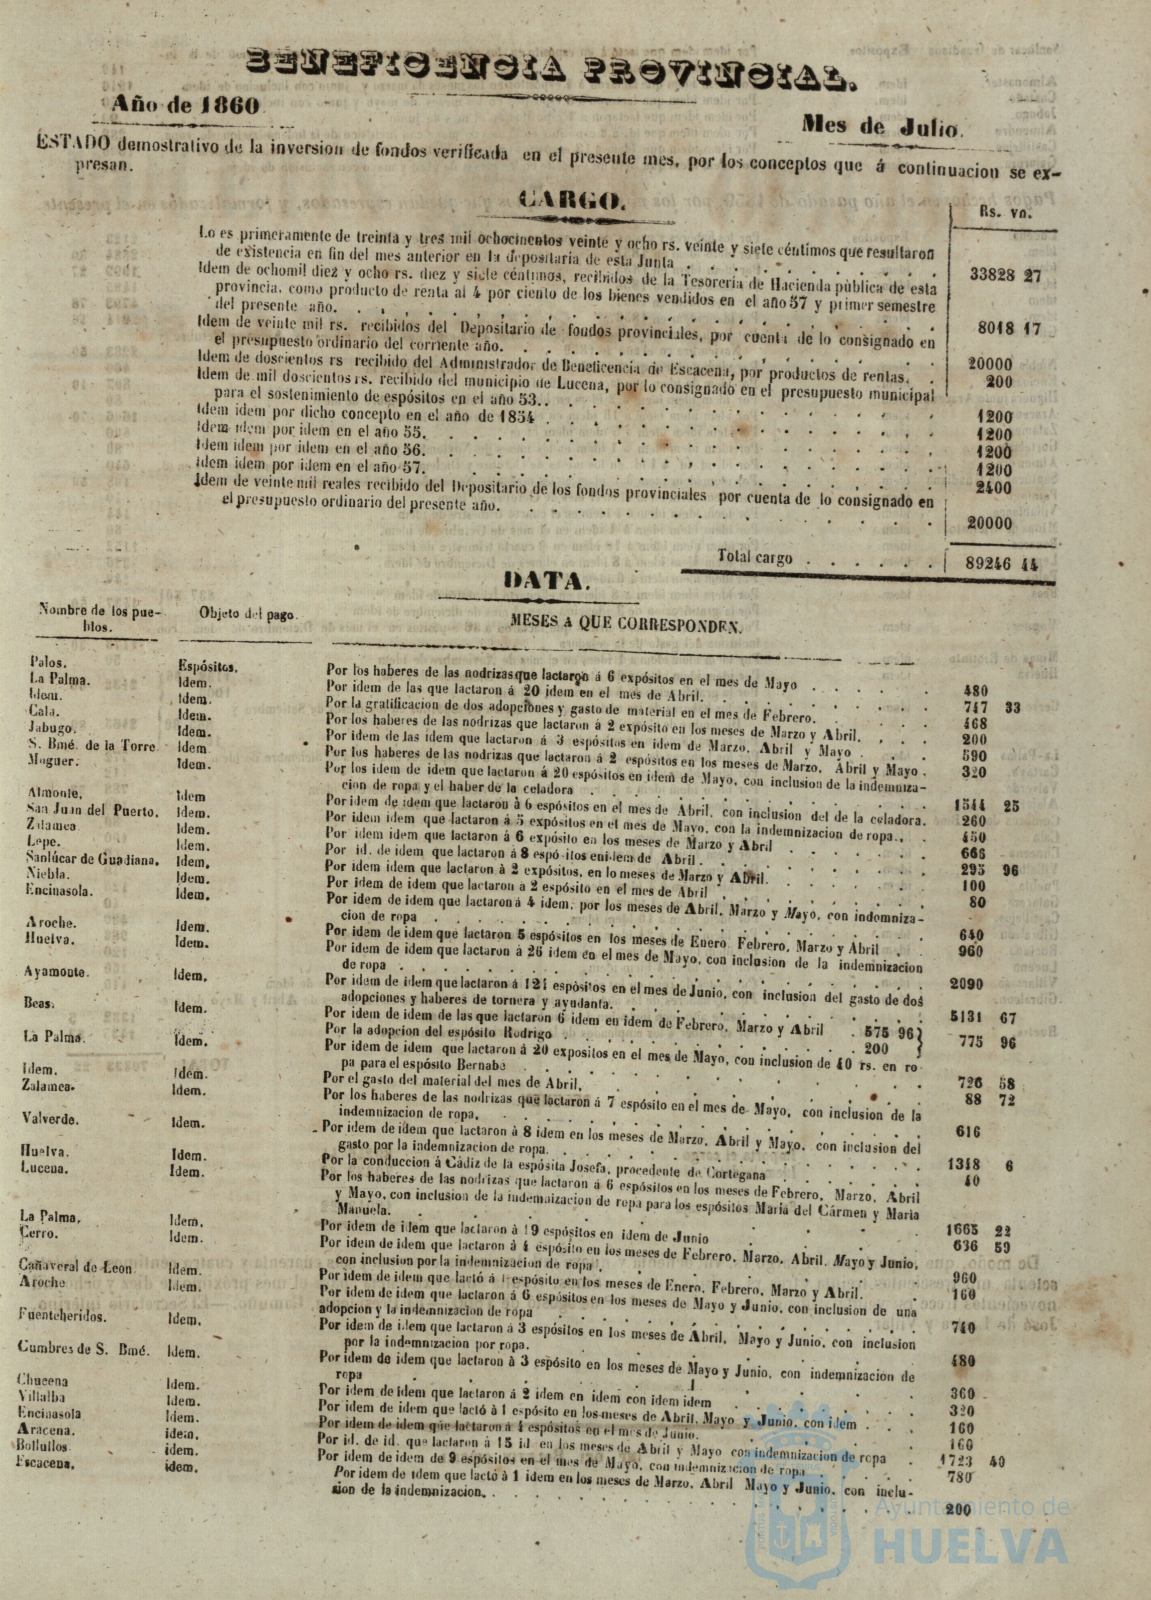 BENEFICENCIA PROVINCIAL.
Año de 1860
Mes de Julio.
ESTADO demostrativo de la inversion de fondos verificada en el presente mes, por los conceptos que á continuacion se ex-
presan.
CARGO.
Rs. vn.
Lo es primeramente de treinta y tres mil ochocientos veinte y ocho rs. veinte y siete céntimos que resultaron
de existencia en fin del mes anterior en la depositaria de esta Junta . . . 33828 27
Idem de ochomil diez y ocho rs. diez y siete céntimos, recibidos de la Tesorería de Hacienda pública de esta
provincia, como producto de renta al 4 por ciento de los bienes vendidos en el año 57 y primer semestre
del presente año. . . . 8018 17
Idem de veinte mil rs. recibidos del Depositario de fondos provinciales, por cuenta de lo consignado en
el presupuesto ordinario del corriente año. . . . 20000
Idem de doscientos rs recibido del Administrador de Beneficencia de Escacena, por productos de rentas. . 200
Idem de mil doscientos rs. recibido del municipio de Lucena, por lo consignado en el presupuesto municipal
para el sostenimiento de espósitos en el año 53. . . 1200
Idem idem por dicho concepto en el año de 1854 . . . 1200
Idem idem por idem en el año 55. . . . 1200
Idem idem por idem en el año 56. . . . 1200
Idem idem por idem en el año 57. . . . 2400
Idem de veinte mil reales recibido del Depositario de los fondos provinciales por cuenta de lo consignado en
el presupuesto ordinario del presente año. . . . 20000
Total cargo . . . . . . 89246 44
DATA.
Nombre de los pue-
blos.
Objeto del pago.
MESES A QUE CORRESPONDEN.
Palos. Espósitos. Por los haberes de las nodrizas que lactaron á 6 expósitos en el mes de Mayo . . . 480
La Palma. Idem. Por idem de las que lactaron á 20 idem en el mes de Abril. . . . 747 33
Idem. Idem. Por la gratificacion de dos adopciones y gasto de material en el mes de Febrero. . . 468
Cala. Idem. Por los haberes de las nodrizas que lactaron á 2 expósito en los meses de Marzo y Abril. . 200
Jabugo. Idem. Por idem de las idem que lactaron á 3 espósitos en idem de Marzo, Abril y Mayo . . 590
S. Bmé. de la Torre Idem Por los haberes de las nodrizas que lactaron á 2 espósitos en los meses de Marzo, Abril y Mayo . 320
Moguer. Idem. Por los idem de idem que lactaron á 20 espósitos en idem de Mayo, con inclusion de la indemniza-
cion de ropa y el haber de la celadora . . . 1544 25
Almonte. Idem Por idem de idem que lactaron à 6 espósitos en el mes de Abril, con inclusion del de la celadora. 260
San Juan del Puerto. Idem. Por idem idem que lactaron á 5 expósitos en el mes de Mayo, con la indemnizacion de ropa. . 450
Zalamea Idem. Por idem idem que lactaron á 6 expósito en los meses de Marzo y Abril . . .
Lepe. Idem. Por id. de idem que lactaron á 8 espósitos en idem de Abril. . . .
Sanlúcar de Guadiana. Idem. Por idem idem que lactaron à 2 expósitos, en lo meses de Marzo y Abril. . . 100
Niebla. Idem. Por idem de idem que lactaron a 2 espósito en el mes de Abril . . . 80
Encinasola. Idem. Por idem de idem que lactaron á 4 idem, por los meses de Abril, Marzo y Mayo, con indemniza-
cion de ropa . . . 640
Aroche. Idem. Por idem de idem que lactaron 5 espósitos en los meses de Enero Febrero, Marzo y Abril . 960
Huelva. Idem. Por idem de idem que lactaron à 26 idem en el mes de Mayo, con inclusion de la indemnizacion
de ropa . . . 2090
Ayamonte. Idem. Por idem de idem que lactaron á 121 espósitos en el mes de Junio, con inclusion del gasto de dos
adopciones y haberes de tornera y ayudanta. . . . 5131 67
Beas. Idem. Por idem de idem de las que lactaron 6 idem en idem de Febrero, Marzo y Abril . 575 96 }
Por la adopcion del espósito Rodrigo . . . 200 } 775 96
La Palma. Idem. Por idem de idem que lactaron á 20 expositos en el mes de Mayo, con inclusion de 40 rs. en ro-
pa para el espósito Bernabe . . . 726 58
Idem. Idem. Por el gasto del material del mes de Abril. . . . 88 72
Zalamea. Idem. Por los haberes de las nodrizas que lactaron á 7 espósito en el mes de Mayo, con inclusion de la
indemnizacion de ropa. . . . 616
Valverde. Idem. Por idem de idem que lactaron á 8 idem en los meses de Marzo, Abril y Mayo, con inclusion del
gasto por la indemnizacion de ropa. . . . 1318 6
Huelva. Idem. Por la conduccion á Cádiz de la espósita Josefa, procedente de Cortegana . . . 40
Lucena. Idem. Por los haberes de las nodrizas que lactaron á 6 espósitos en los meses de Febrero, Marzo, Abril
y Mayo, con inclusion de la indemnizacion de ropa para los espósitos Maria del Cármen y Maria
Manuela. . . . 1665 22
La Palma. Idem. Por idem de idem que lactaron à 19 espósitos en idem de Junio . . . 636 59
Cerro. Idem. Por idem de idem que lactaron á 4 espósito en los meses de Febrero, Marzo, Abril, Mayo y Junio,
con inclusion por la indemnizacion de ropa . . . 960
Cañaveral de Leon Idem. Por idem de idem que lactó á 1 espósito en los meses de Enero, Febrero, Marzo y Abril. . 160
Aroche Idem. Por idem de idem que lactaron á 6 espósitos en los meses de Mayo y Junio, con inclusion de una
adopcion y la indemnizacion de ropa . . . 740
Fuenteheridos. Idem. Por idem de idem que lactaron á 3 espósitos en los meses de Abril, Mayo y Junio, con inclusion
por la indemnizacion por ropa. . . . 480
Cumbres de S. Bmé. Idem. Por idem de idem que lactaron à 3 espósito en los meses de Mayo y Junio, con indemnizacion de
ropa . . . 360
Chucena Idem. Por idem de idem que lactaron á 2 idem en idem con idem idem . . . 320
Villalba Idem. Por idem de idem que lactó à 1 espósito en los meses de Abril, Mayo y Junio, con idem . . 160
Encinasola Idem. Por idem de idem que lactaron á 4 espósitos en el mes de Junio. . . . 160
Aracena. idem. Por id. de id. que lactaron á 15 id en los meses de Abril y Mayo con indemnizacion de ropa . 1723 40
Bollullos idem. Por idem de idem de 9 espósitos en el mes de Mayo, con indemnizacion de ropa . . 780
Escacena. idem. Por idem de idem que lactó à 1 idem en los meses de Marzo, Abril Mayo y Junio, con inclu-
sion de la indemnizacion. . . . 200
Ayuntamiento de
HUELVA